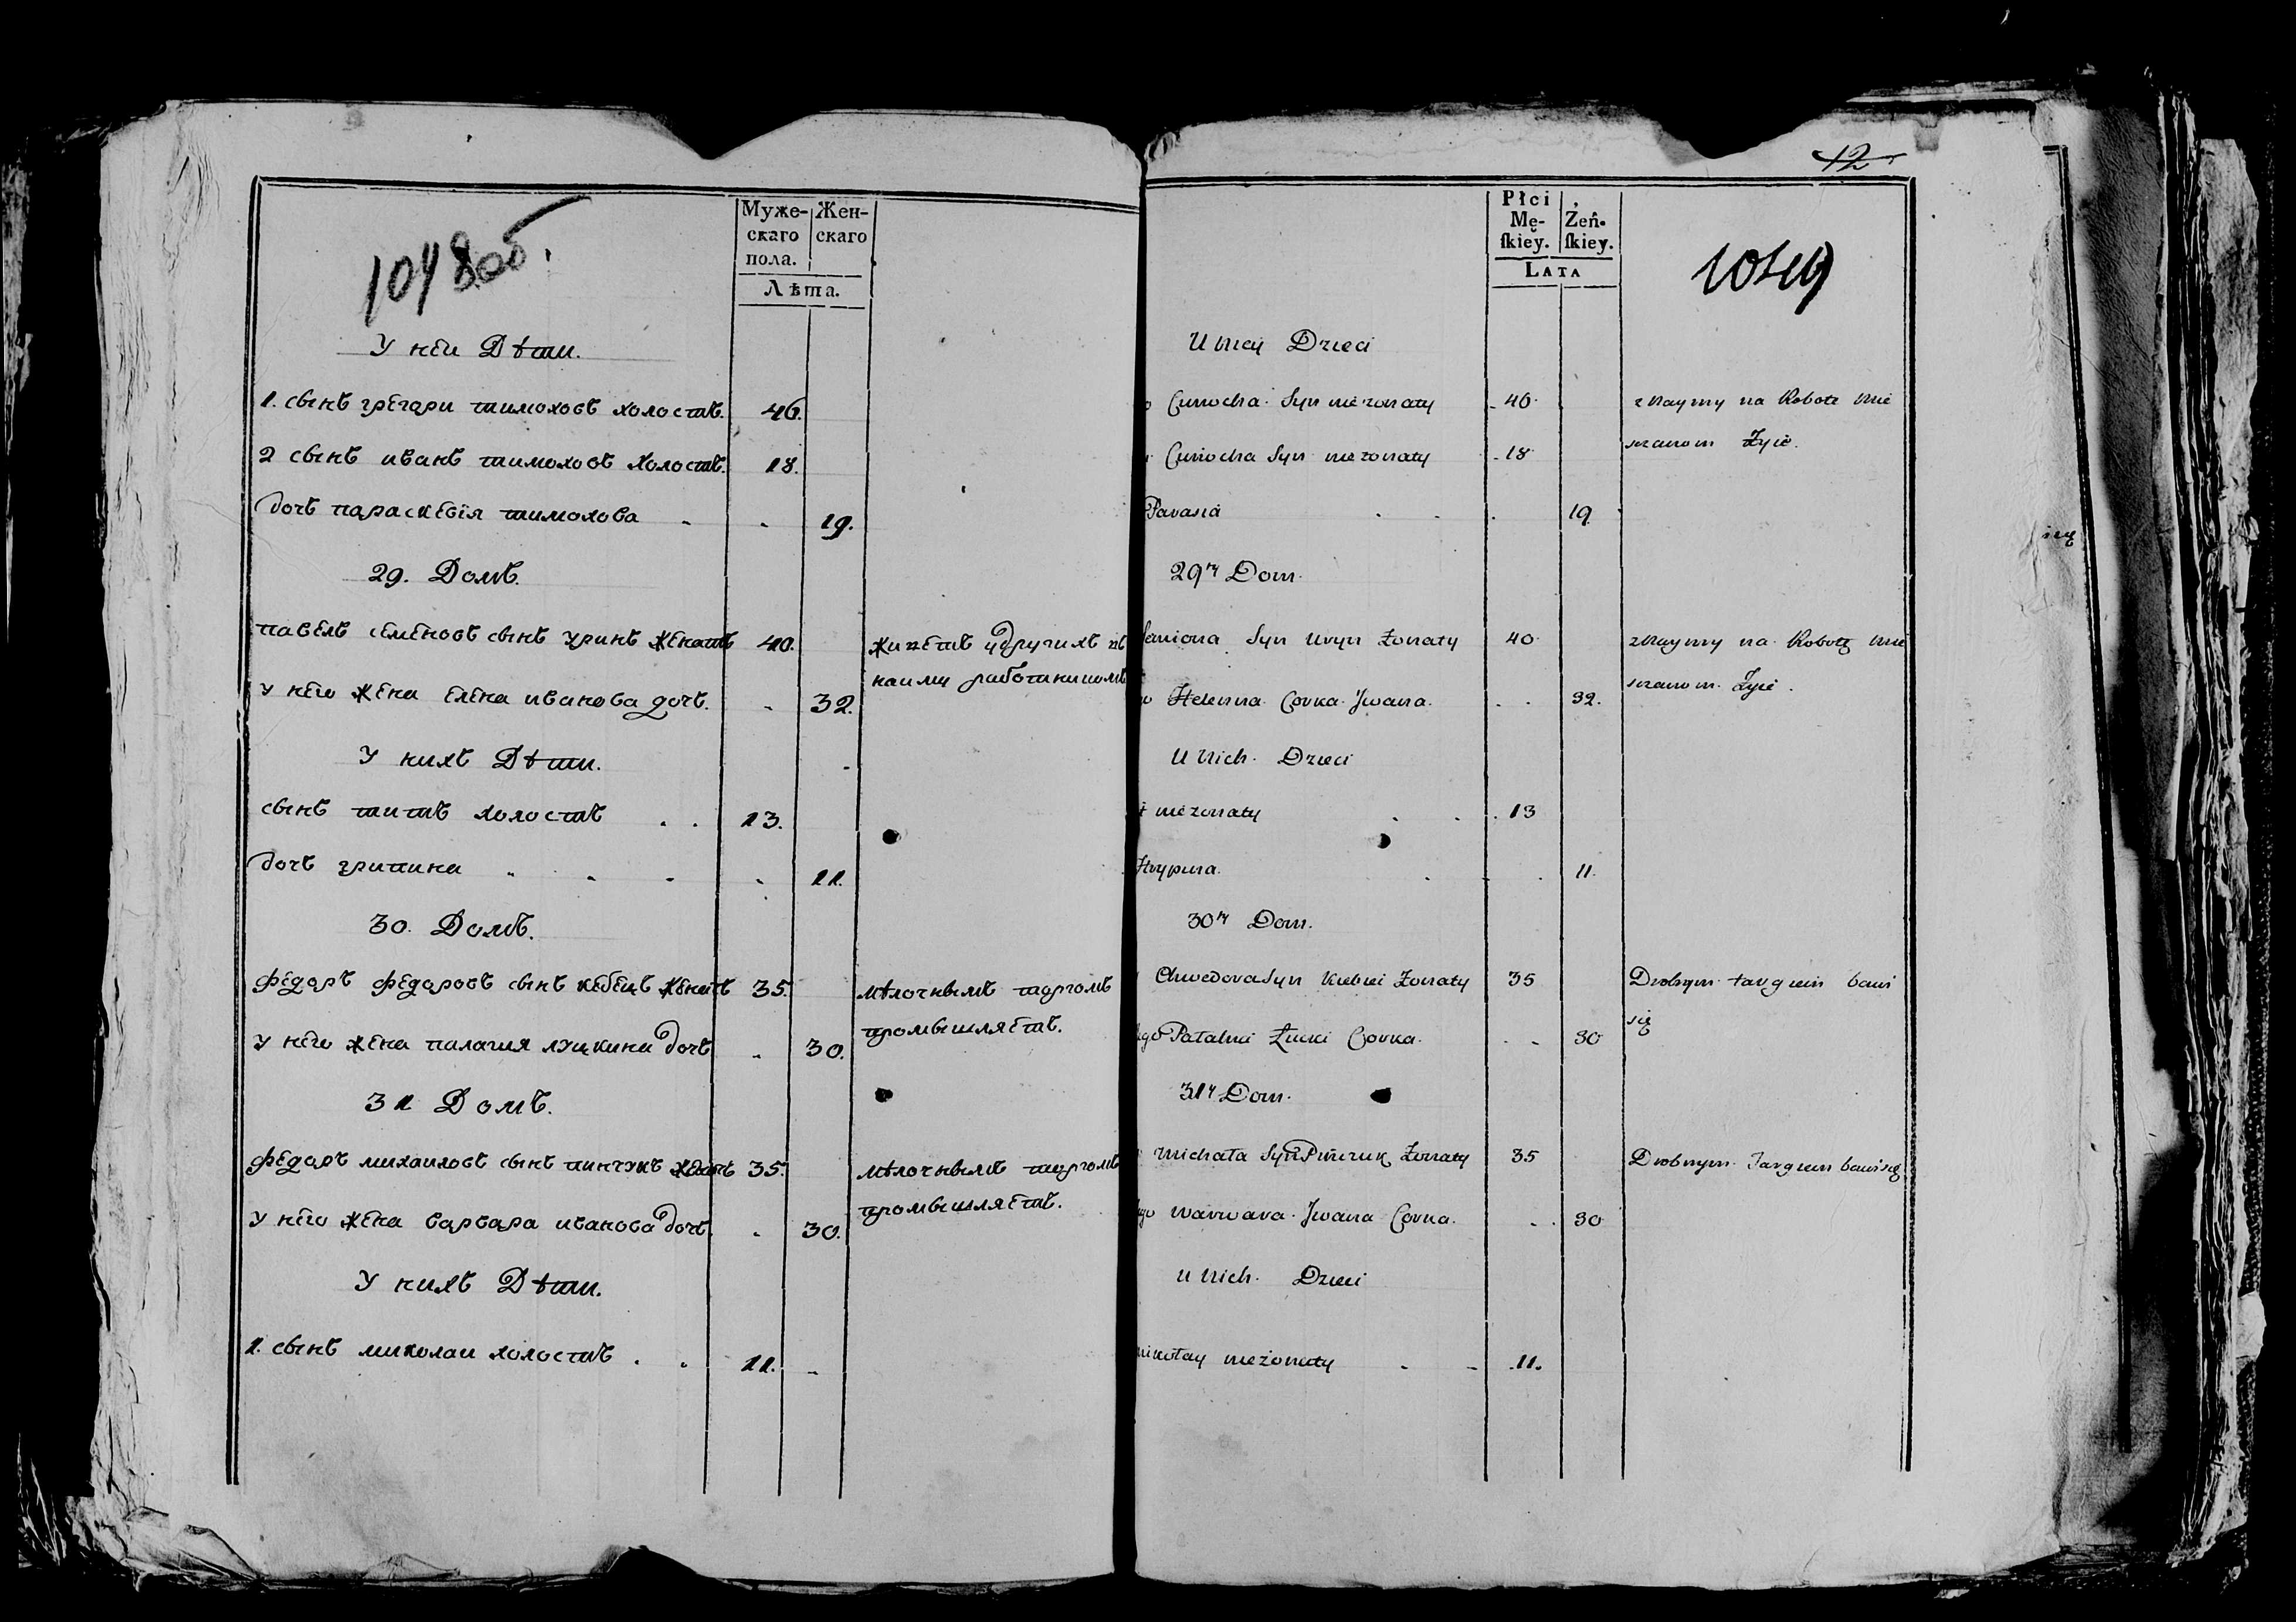 1048об.
Муже-
скаго
пола.
Жен-
скаго
Лѣта.
У неи Дѣти.
1. сынъ грегори тимоховъ холостъ. 40.
2 сынъ иванъ тимоховъ холостъ. 18.
дочъ параскевія тимохова 19.
29. Домъ.
павелъ семеновъ сынъ гринъ женатъ 40. живетъ удругихъ
у него жена елена иванова дочъ. 32. наиму работникомъ
У нихъ Дѣти.
сынъ титъ холостъ 13.
дочъ грипина 11.
30. Домъ.
федоръ федоровъ сынъ кебецъ женатъ 35. мѣлочнымъ торгомъ
промышляетъ.
у него жена палагия луцкина дочъ 30.
31 Домъ.
федоръ михаиловъ сынъ пинчукъ женатъ 35. мѣлочнымъ торгомъ
промышляетъ.
у него жена варвара иванова дочъ. 30.
У нихъ Дѣти.
1. сынъ миколаи холостъ. 11.
12
Płci
Mę-
skiey.
Żeń-
skiey.
Lata
U niey Dzieci
Cimocha Syn nieżonaty 40 z naymy na Robote mie
szanom Żyie.
Cimocha Syn nieżonaty 18
Parasia 19
29ty Dom.
Semiona Syn Hryn Żonaty 40 z naymy na Robotę mie
szanom Żyie.
Helenna Corka Jwana. 32.
U nich Dzieci
nieżonaty 13
Hrypina. 11.
30ty Dom.
Chwedora Syn Kiebiec Żonaty 35 Drobnym targiem bawi
się
Połalnia Łucki Corka. 30
31ty Dom.
Michała Syn Pińczuk Żonaty 35 Drobnym Targiem bawi się
Warwara Jwana Corka. 30
U nich Dzieci
Mikołay nieżonaty 11.
się